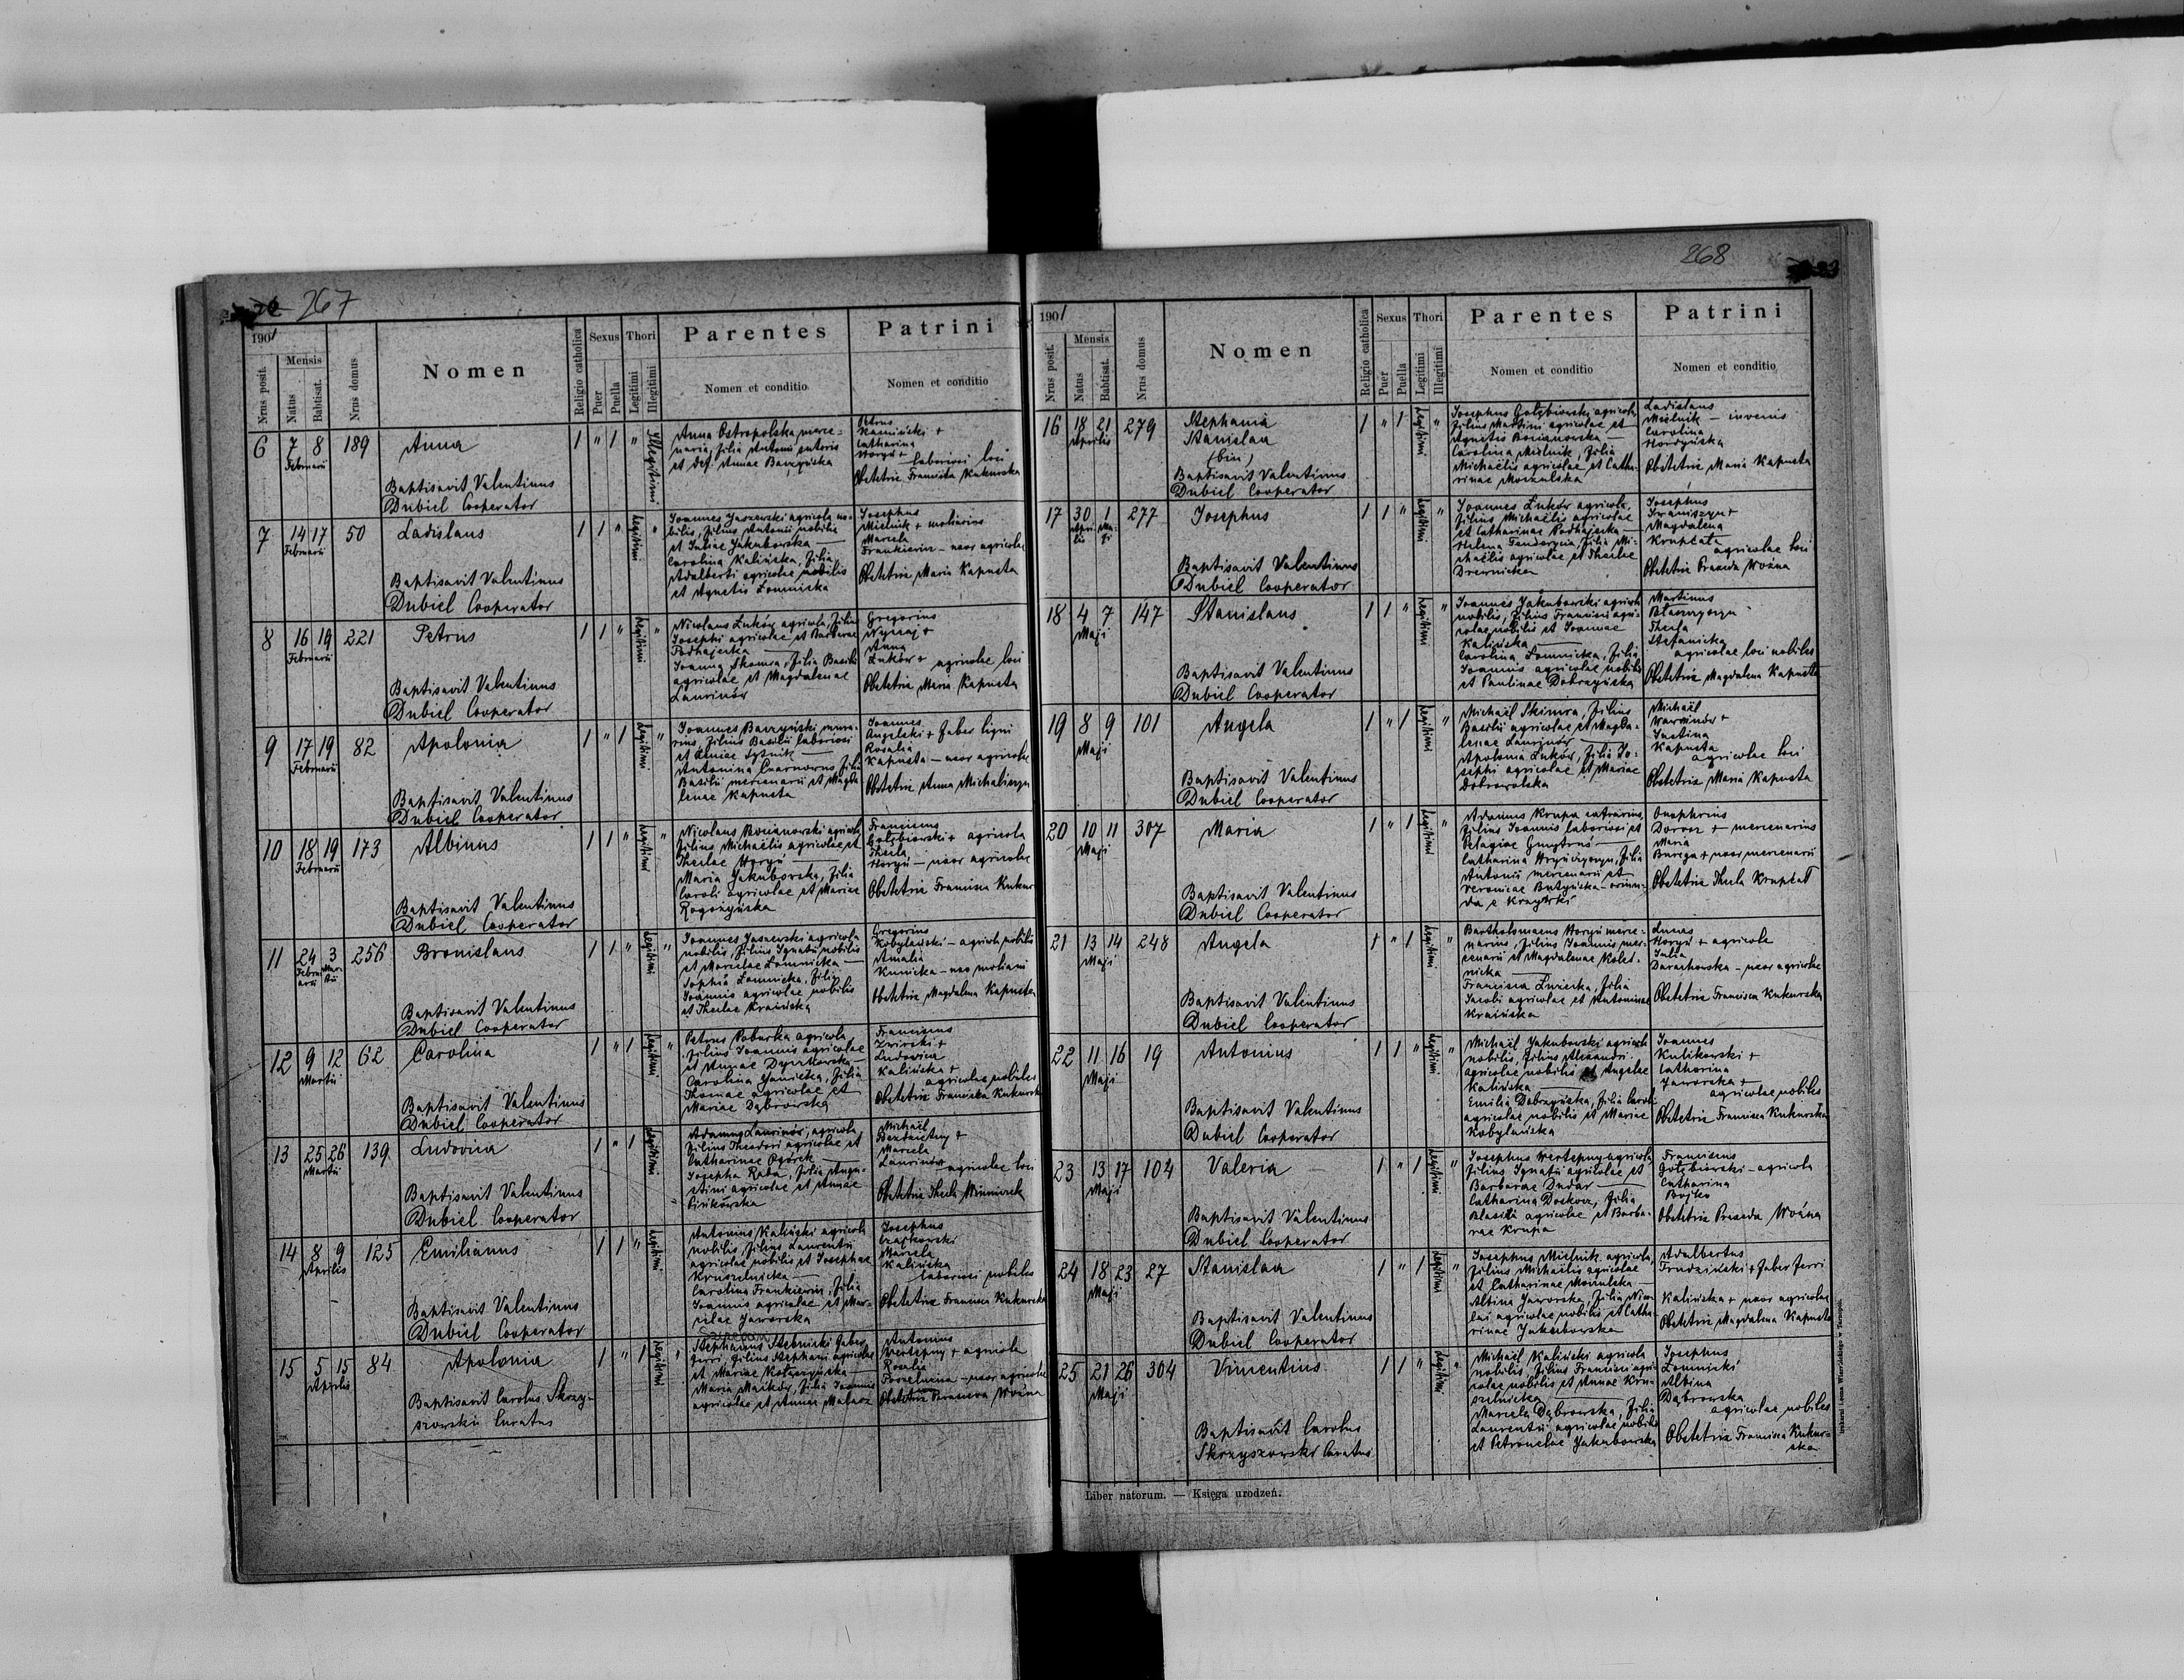 267
1901
Nrus posit.
Mensis
Natus
Babtisat.
Nrus domus
Nomen
Religio catholica
Sexus
Puer
Puella
Thori
Legitimi
Illegitimi
Parentes
Nomen et conditio
Patrini
Nomen et conditio
6
7 8
Februarii
189
Anna
Baptisavit Valentinus
Dubiel Cooperator
1 " 1 "
Illegitimi
Anna Ostropolska merce-
naria, filia Antonii sutoris
et def. Annae Barzyńska
Petrus
Kamiński +
Catharina
Horyń +
laboriosi loci
Obstetrix Francisca Kukurska
7
14 17
Februarii
50
Ladislaus
Baptisavit Valentinus
Dubiel Cooperator
1 1 "
Legitimi
"
Joannes Jaszewski agricola no-
bilis, filius Antonii nobilis
et Juliae Jakubowska —
Carolina Kalińska, filia
Adalberti agricolae nobilis
et Agnetis Łomnicka
Josephus
Mielnik + molinarius
Marcela
Frankiewicz - uxor agricolae
Obstetrix Maria Kapusta
8
16 19
Februarii
221
Petrus
Baptisavit Valentinus
Dubiel Cooperator
1 1 "
Legitimi
"
Nicolaus Łuków agricola, filius
Josephi agricolae et Barbarae
Podhajecka —
Joanna Skomra, filia Basilii
agricolae et Magdalenae
Laurinów
Gregorius
Anna
Łuków + agricolae loci
Obstetrix Maria Kapusta
9
17 19
Februarii
82
Apolonia
Baptisavit Valentinus
Dubiel Cooperator
1 " 1
Legitimi
"
Joannes Barzyński mura-
rius, filius Basilii laboriosi
et Annae
Antonina Czarnovus filia
Basilii mercenarii et Magda-
lenae Kapusta
Joannes
Angelski + faber ligni
Rosalia
Kapusta — uxor agricolae
Obstetrix Anna Michaliszyn
10
18 19
Februarii
173
Albinus
Baptisavit Valentinus
Dubiel Cooperator
1 1 "
Legitimi
"
Nicolaus Bocianowski agricola
filius Michaëlis agricolae et
Theclae Horyń —
Maria Jakubowska, filia
Caroli agricolae et Mariae
Rogożyńska
Franciscus
Gołębiowski + agricola
Thecla
Horyń — uxor agricolae
Obstetrix Francisca Kukur
11
24 3
Febru- Mar-
arii tii
256
Bronislaus
Baptisavit Valentinus
Dubiel Cooperator
1 1 "
Legitimi
"
Joannes Jaszewski agricola
nobilis, filius Ignatii nobilis
et Marcelae Łomnicka —
Sophia Łomnicka, filia
Joannis agricolae nobilis
et Theclae Kraińska
Gregorius
Kobylański — agricola nobilis
Amalia
Kunicka — uxor molinarii
Obstetrix Magdalena Kapusta
12
9 12
Martii
62
Carolina
Baptisavit Valentinus
Dubiel Cooperator
1 " 1
Legitimi
"
Petrus Poburka agricola
filius Joannis agricolae
et Annae
Carolina Janicka, filia
Thomae agricolae et
Mariae Dąbrowska
Franciscus
Zwirski +
Ludovica
Kalińska +
agricolae nobiles
Obstetrix Francisca Kukurska
13
25 26
Martii
139
Ludovica
Baptisavit Valentinus
Dubiel Cooperator
1 " 1
Legitimi
"
Adamus Laurinów, agricola
filius Theodori agricolae et
Catharinae Ogórek —
Josepha Raba, filia Augu-
stini agricolae et Annae
Michaël
Bezdzietny +
Marcela
Laurinów
agricolae loci
Obstetrix Thecla Winniczek
14
8 9
Aprilis
125
Emilianus
Baptisavit Valentinus
Dubiel Cooperator
1 1 "
Legitimi
Antonius Kaliński agricola
nobilis, filius Laurentii
agricolae nobilis et Josephae
Kruszelnicka —
Carolina Frankiewicz, filia
Joannis agricolae et Mar-
celae Jaworska
Josephus
Czajkowski
Marcela
Kalińska
laboriosi nobiles
Obstetrix Francisca Kukurska
15
5 15
Aprilis
84
Apolonia
Baptisavit Carolus Skrzy-
szowski Curatus
1 " 1
Legitimi
"
Szczepan
Stephanus Stebnicki faber
ferri, filius Stephani agricolae
et Mariae
Maria Maików, filia Joannis
agricolae et Annae Małasz
Antonius
Wertepny + agricola
Rosalia
uxor agricolae
Obstetrix Praxeda Woźna
268
1901
Nrus posit.
Mensis
Natus
Babtisat.
Nrus domus
Nomen
Religio catholica
Sexus
Puer
Puella
Thori
Legitimi
Illegitimi
Parentes
Nomen et conditio
Patrini
Nomen et conditio
16
18 21
Aprilis
279
Stephania
Stanislaa
(bin)
Baptisavit Valentinus
Dubiel Cooperator
1 " 1
Legitimi
"
Josephus Gołębiowski agricola
filius Martini agricolae et
Agnetis Bocianowska —
Carolina Mielnik, filia
Michaëlis agricolae et Catha-
rinae Moszulska
Ladislaus
Mielnik — iuvenis
Carolina
Hordyńska
Obstetrix Maria Kapusta
17
30 1
Apri- Ma-
lis ji
277
Josephus
Baptisavit Valentinus
Dubiel Cooperator
1 1 "
Legitimi
"
Joannes Łuków agricola,
filius Michaëlis agricolae
et Catharinae Podhajecka —
Helena Fenderycia, filia Mi-
chaëlis agricolae et Theclae
Drewnicka
Josephus
Iwaniszyn +
Magdalena
Krupczak
agricolae loci
Obstetrix Praxeda Woźna
18
4 7
Maji
147
Stanislaus
Baptisavit Valentinus
Dubiel Cooperator
1 1 "
Legitimi
"
Joannes Jakubowski agricola
nobilis, filius Francisci agri-
colae nobilis et Joannae
Kalińska —
Carolina Łomnicka, filia
Joannis agricolae nobilis
et Paulinae Dobrzyńska
Martinus
Thecla
Stefanicka
agricolae loci nobiles
Obstetrix Magdalena Kapusta
19
8 9
Maji
101
Angela
Baptisavit Valentinus
Dubiel Cooperator
1 " 1
Legitimi
"
Michaël Skimra, filius
Basilii agricolae et Magda-
lenae Laurinów —
Apolonia Łuków, filia Jo-
sephi agricolae et Mariae
Dobrowolska
Michaël
Justina
Kapusta
agricolae loci
Obstetrix Maria Kapusta
20
10 11
Maji
307
Maria
Baptisavit Valentinus
Dubiel Cooperator
1 " 1
Legitimi
"
Adamus Krupa
filius Joannis laboriosi et
Pelagiae
Catharina Hryńczyszyn, filia
Antonii mercenarii et
Veronicae Butyńska — oriun-
da e Krzywki
Onuphrius
Dorosz + mercenarius
Maria
Burega + uxor mercenarii
Obstetrix Thecla Krupczak
21
13 14
Maji
248
Angela
Baptisavit Valentinus
Dubiel Cooperator
1 " 1
Legitimi
"
Bartholomaeus Horyń merce-
narius, filius Joannis mer-
cenarii et Magdalenae Koled-
nicka —
Francisca Zwiecka, filia
Jacobi agricolae et Antoninae
Kraińska —
Lucas
Horyń + agricola
Julia
Darachowska — uxor agricolae
Obstetrix Francisca Kukurska
22
11 16
Maji
19
Antonius
Baptisavit Valentinus
Dubiel Cooperator
1 1 "
Legitimi
"
Michaël Jakubowski agricola
nobilis, filius Alexandri
agricolae nobilis et Angelae
Kalińska —
Emilia Dobrzyńska, filia Caroli
agricolae nobilis et Mariae
Kobylańska
Joannes
Kulikowski +
Catharina
Jaworska +
agricolae nobiles
Obstetrix Francisca Kukurska
23
13 17
Maji
104
Valeria
Baptisavit Valentinus
Dubiel Cooperator
1 " 1
Legitimi
"
Josephus Wertepny agricola
filius Ignatii agricolae et
Barbarae Dudar —
Catharina Doskocz, filia
Blasii agricolae et Barba-
rae Krupa
Franciscus
Gołębiowski — agricola
Catharina
Bojko
Obstetrix Praxeda Woźna
24
18 23
Maji
27
Stanislaa
Baptisavit Valentinus
Dubiel Cooperator
1 " 1
Legitimi
"
Josephus Mielnik agricola,
filius Michaëlis agricolae
et Catharinae Moszulska —
Albina Jaworska, filia Nico-
lai agricolae nobilis et Catha-
rinae Jakubowska
Adalbertus
Frudziński + faber ferri
Kalińska + uxor agricolae
Obstetrix Magdalena Kapusta
25
21 26
Maji
304
Vincentius
Baptisavit Carolus
Skrzyszowski Curatus
1 1 "
Legitimi
"
Michaël Kaliński agricola
nobilis, filius Francisci agri-
colae nobilis et Annae Kru-
szelnicka —
Marcela Dąbrowska, filia
Laurentii agricolae nobilis
et Petronelae Jakubowska
Josephus
Łomnicki
Albina
Dąbrowska
agricolae nobiles
Obstetrix Francisca Kukur-
ska
Liber natorum. — Księga urodzeń.